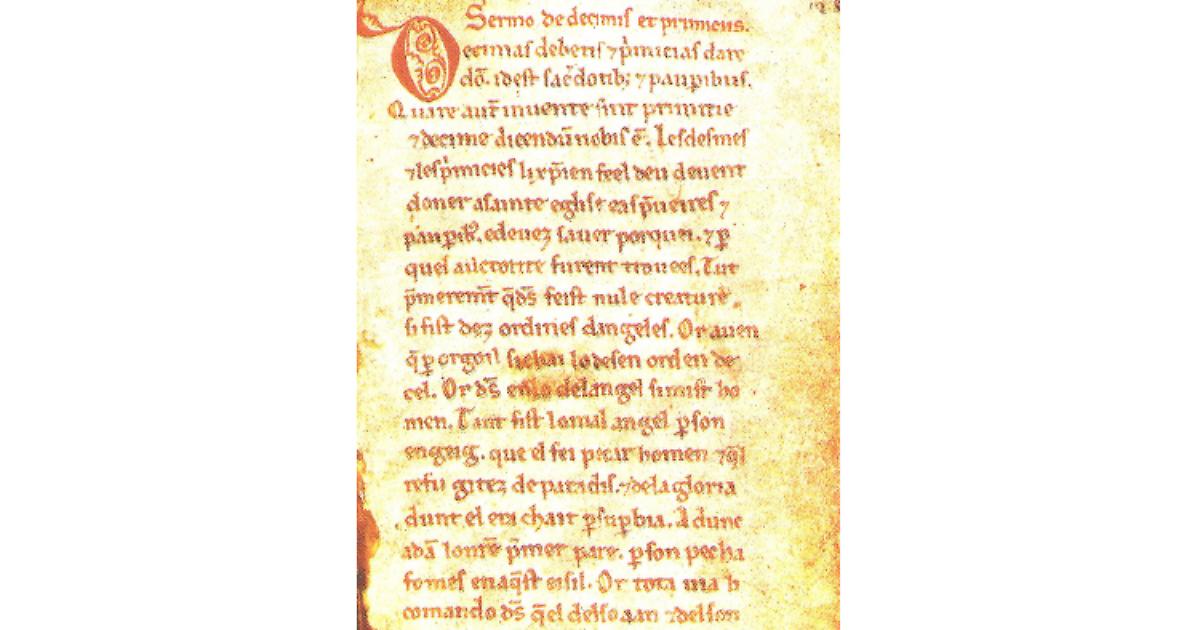 Sermo de decimiſ et primiciis.
Decimaſ debetiſ ⁊ p̄miciaſ dare
dō. id eſt ſac̄dotib; ⁊ paupibuſ.
Quare aut̄ inuente ſunt primitie
⁊ decime dicendū nobiſ ē. Leſdeſmeſ
⁊leſp̄micieſ li xp̄ien feel deu deuent
doner aſainte egliſe eaſp̄ueireſ ⁊
paup̲ib᷒. edeuez ſauer porquei. ⁊ ꝑ
quel auctorite furent troueeſ. Tut
p̄meremt̄ q̄ dſ̄ feiſt nule creature,
ſi fiſt dez ordineſ dangeleſ. Or auen
q̄ ꝑ orgoil lo deſen orden de
cel. Or dſ̄ delangel ho
men. Tant fiſt lo mal angel ꝑ ſon
engeig. que el fei pecar homen ⁊ q̄l
refu gitez de paradiſ. ⁊ delagloria
dunt el era chait ꝑ ſuꝑbia. Adunc
adā p̄mer pare. ꝑ ſon pecha
fomeſ enaq̄ſt eiſil. Or tota uia li
comando dſ̄ q̄el delſo ⁊delſon